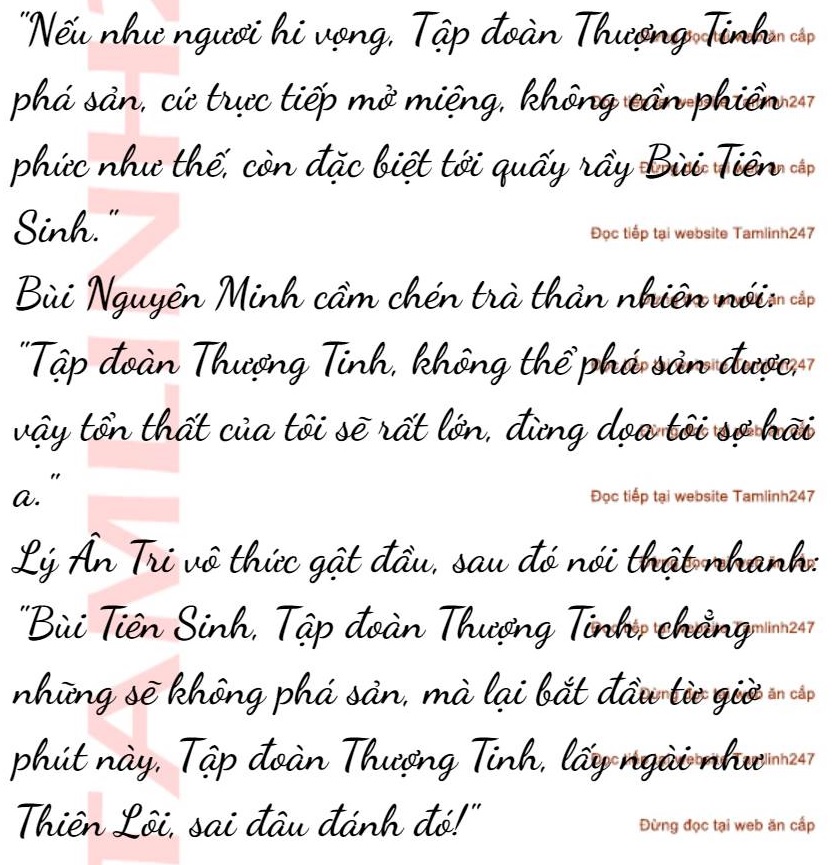 "Nếu như ngươi hi vọng, Tập đoàn Thượng Tinh
phá sản, cứ trực tiếp mở miệng, không cần phiền
phức như thế, còn đặc biệt tới quấy rầy Bùi Tiên
Sinh."
Đọc tiếp tại website Tamlinh247
Bùi Nguyên Minh cầm chén trà thản nhiên nói:
"Tập đoàn Thượng Tinh, không thể phá sản được,
vậy tổn thất của tôi sẽ rất lớn, đừng dọa tôi sợ hãi
a."
Đọc tiếp tại website Tamlinh247
Lý Ân Tri vô thức gật đầu, sau đó nói thật nhanh:
"Bùi Tiên Sinh, Tập đoàn Thượng Tinh, chẳng
những sẽ không phá sản, mà lại bắt đầu từ giờ
phút này, Tập đoàn Thượng Tinh, lấy ngài như
Thiên Lôi, sai đâu đánh đó!"
Đừng đọc tại web ăn cắp
TAMLINH2